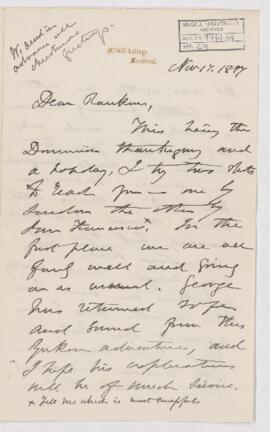 We send in
advance all
Christmas
greetings.
McGill College,
Montreal.
McGILL UNIVERSITY
ARCHIVES
ACC. NO.
REF.
Nov 1897
Dear Rankine,
This being the
Dominion thanksgiving and
a holiday, I try two shots
to reach you — one by
London the other by
San Francisco x. In the
first place we are all
fairly well and going
on as usual. George
has returned safe
and sound from his
Yukon adventure, and
I hope his explorations
will be of much service.
x Tell me which is most